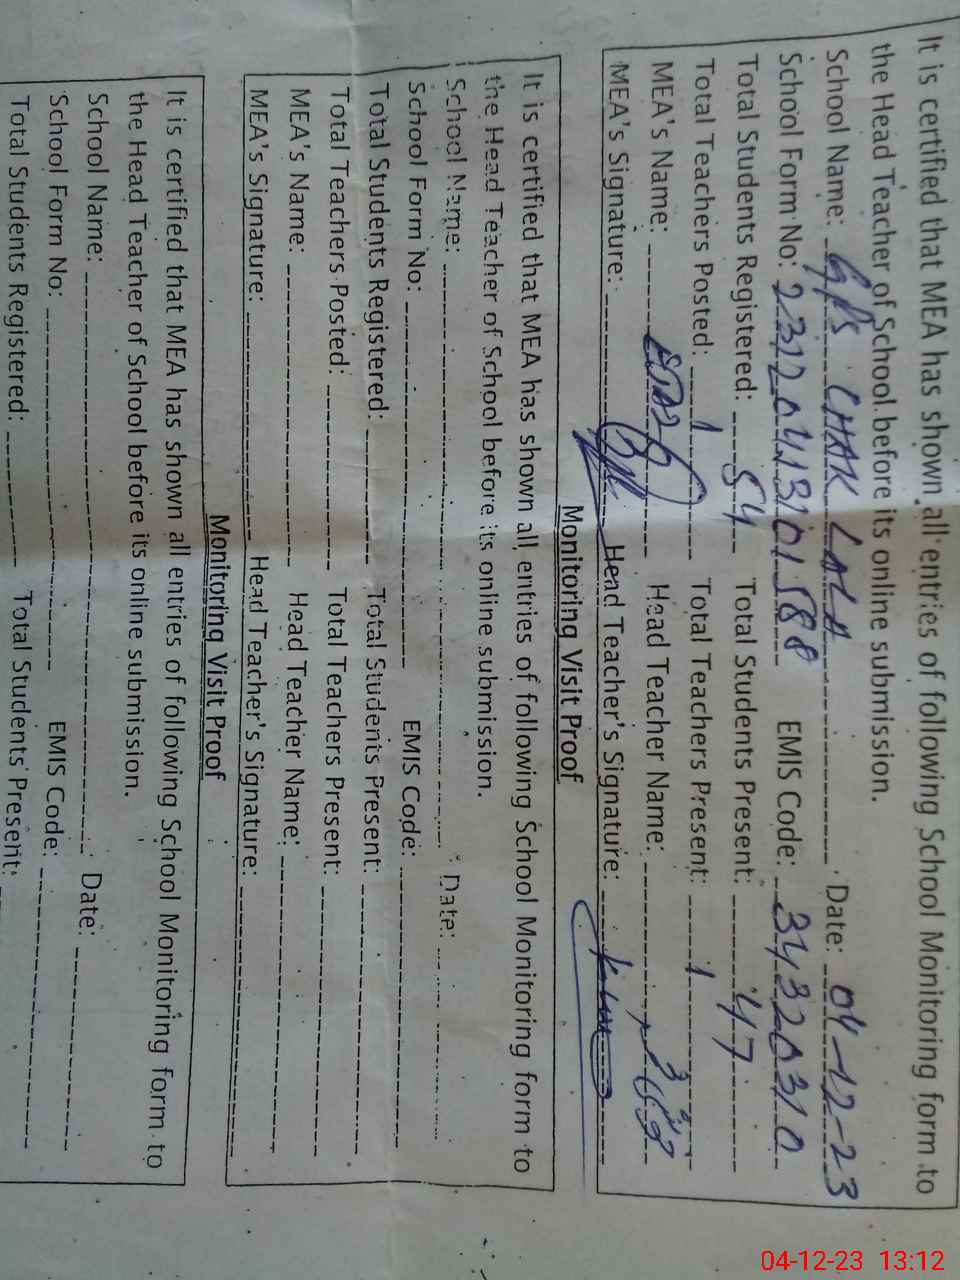 It is certified that MEA has shown all entries of following School Monitoring form to
the Head Teacher of School before its online submission.
School Name: G/PS CHAK LALA Date: 04-12-23
School Form No: 23120413101588 EMIS Code: 34320310
Total Students Registered: 54 Total Students Present: 47
Total Teachers Posted: 1 Total Teachers Present: 1
MEA's Name: Head Teacher Name:
MEA's Signature: Head Teacher's Signature:
Monitoring Visit Proof
It is certified that MEA has shown all entries of following School Monitoring form to
the Head Teacher of School before its online submission.
School Name: Date:
School Form No: EMIS Code:
Total Students Registered: Total Students Present:
Total Teachers Posted: Total Teachers Present:
MEA's Name: Head Teacher Name:
MEA's Signature: Head Teacher's Signature:
Monitoring Visit Proof
It is certified that MEA has shown all entries of following School Monitoring form to
the Head Teacher of School before its online submission.
School Name: Date:
School Form No: EMIS Code:
Total Students Registered: Total Students Present:
04-12-23 13:12